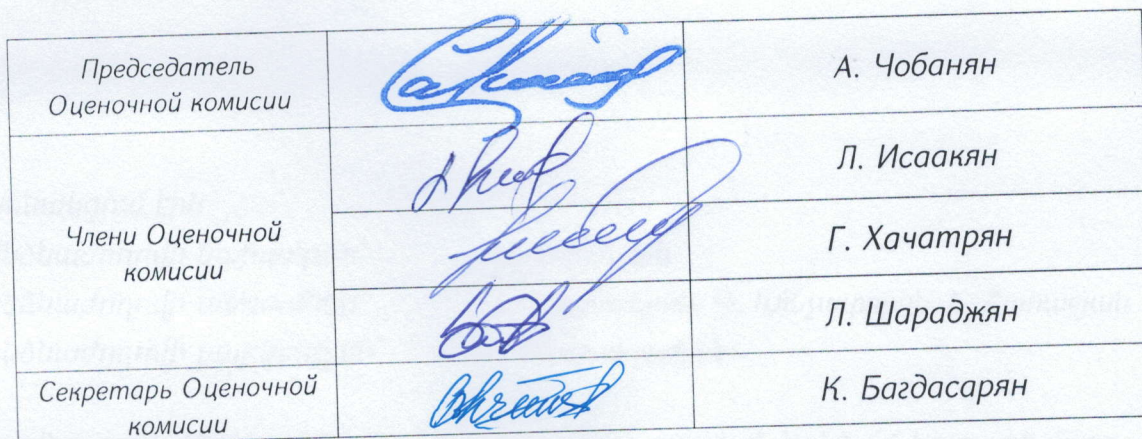 Председатель
Оценочной комисии
А. Чобанян
Л. Исаакян
Члени Оценочной
комисии
Г. Хачатрян
Л. Шараджян
Секретарь Оценочной
комисии
К. Багдасарян